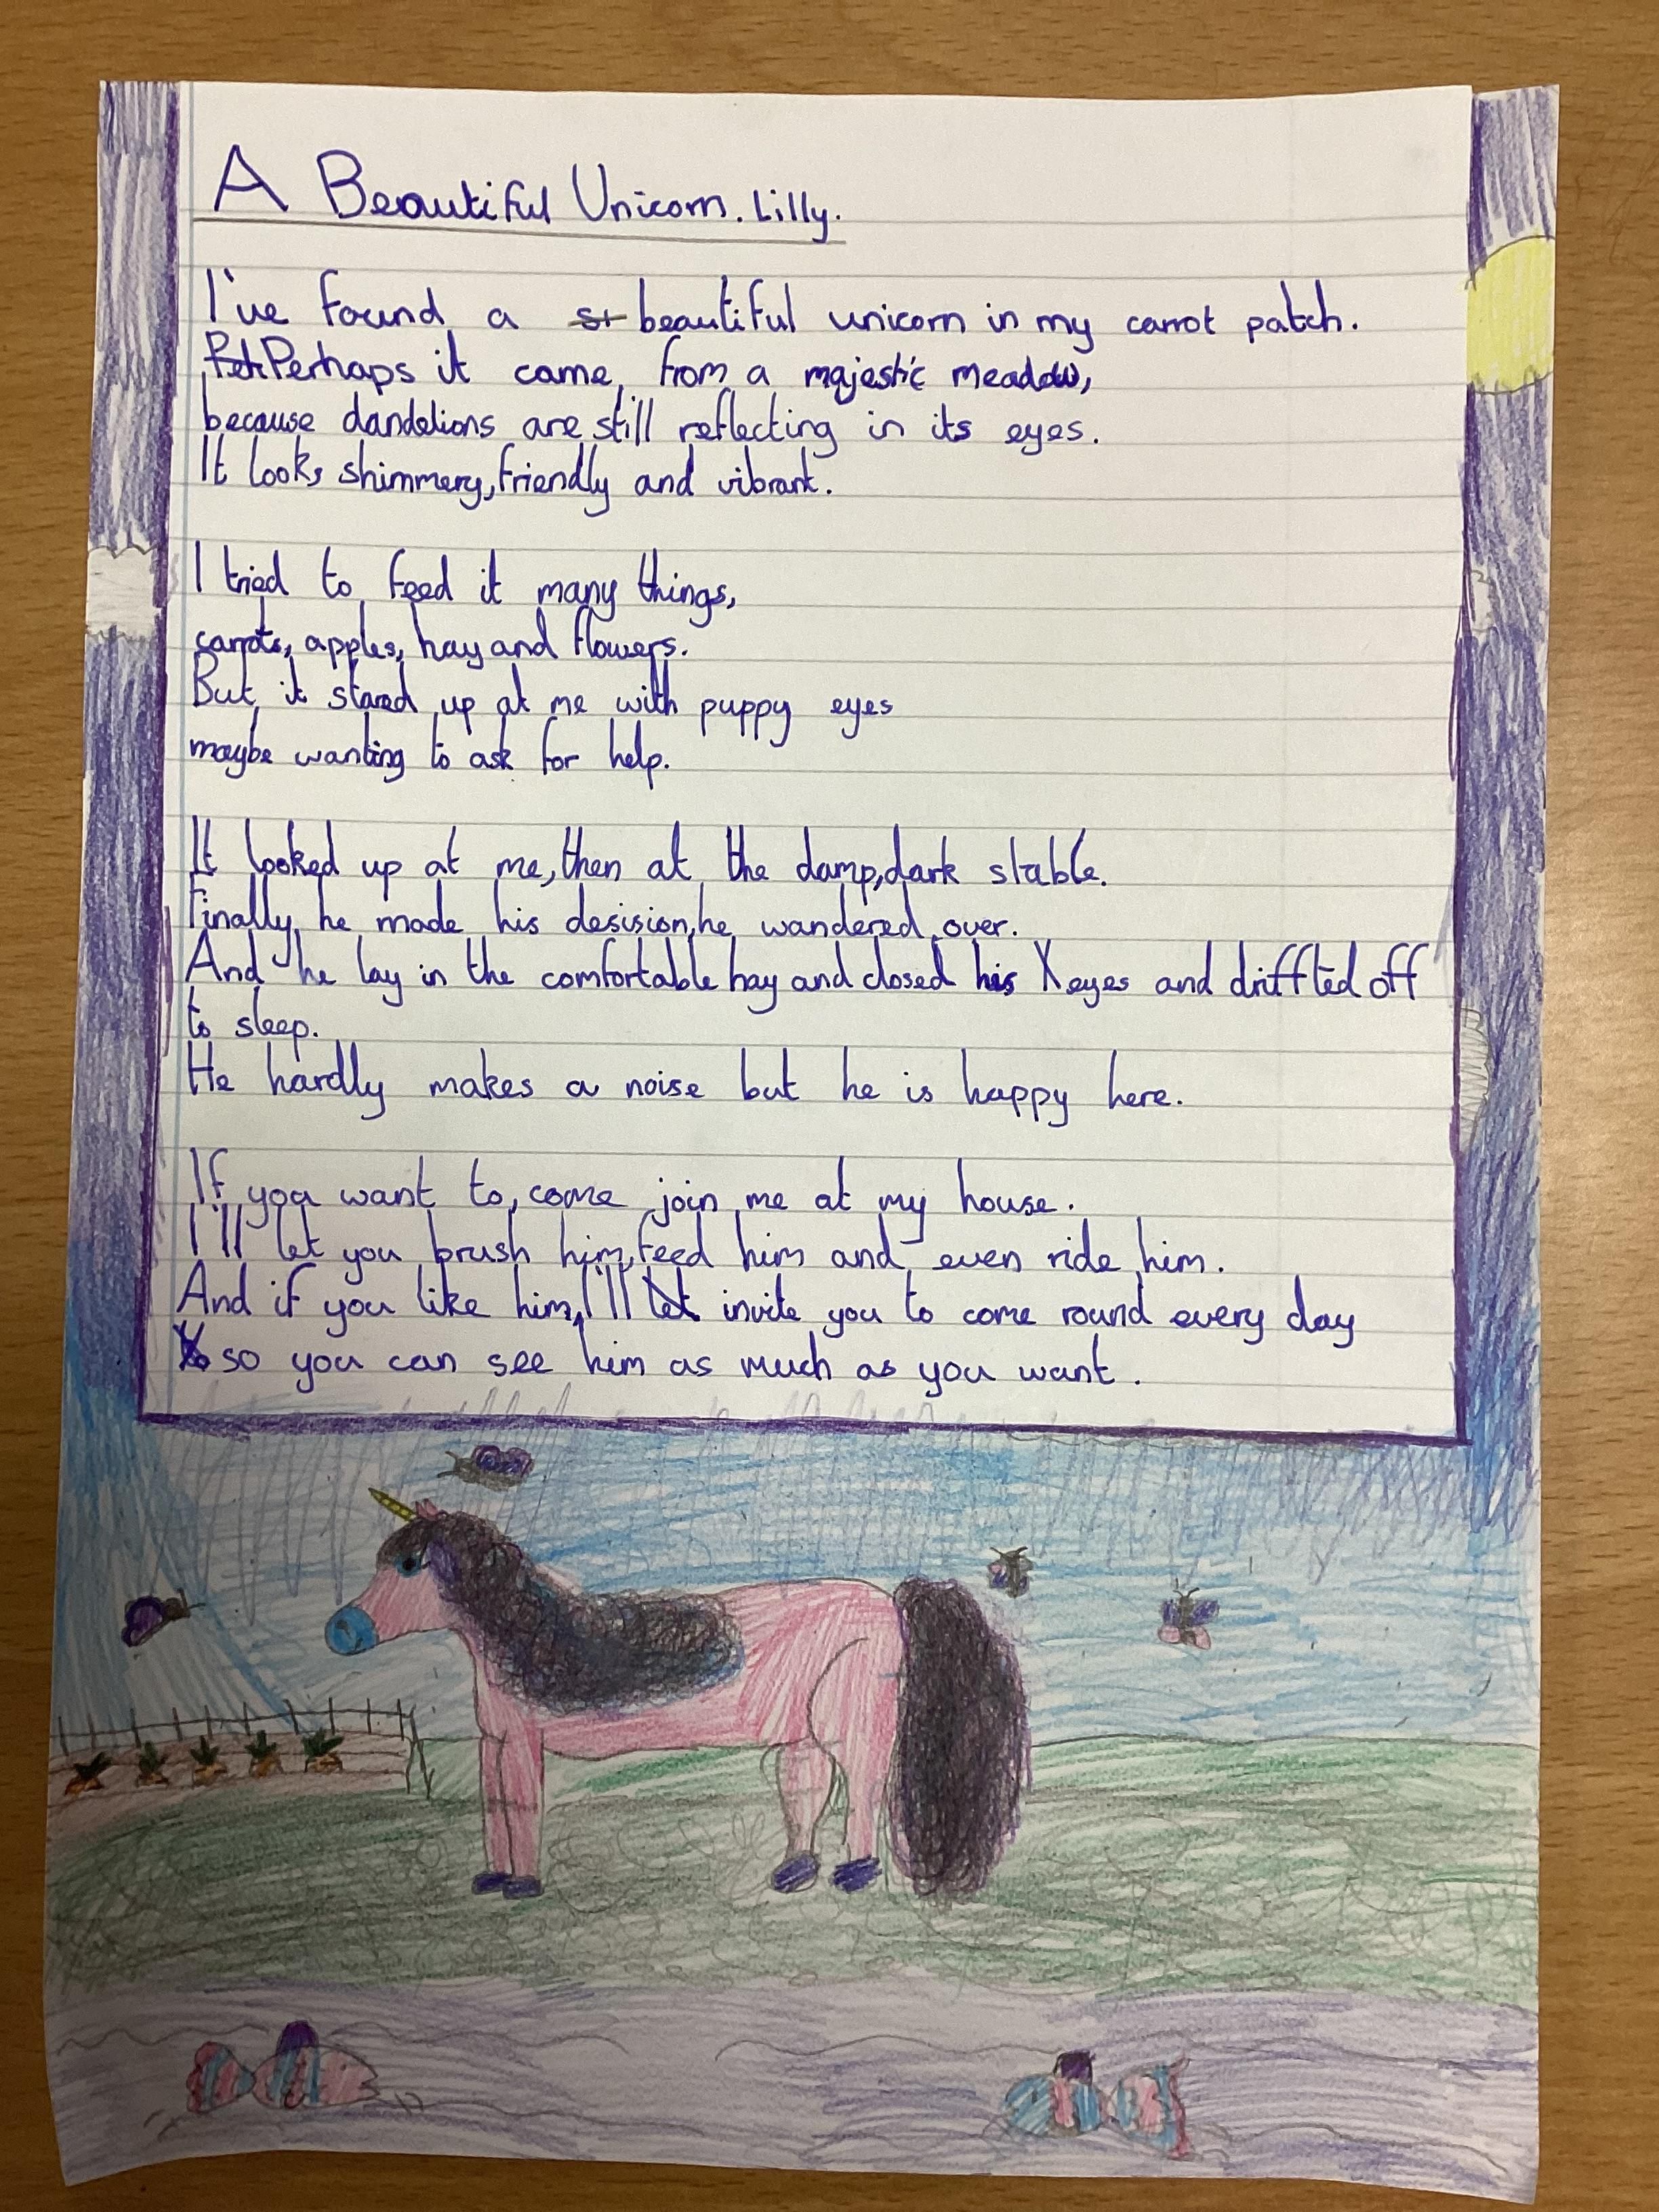 A Beautiful Unicorn. Lilly.
I've found a st beautiful unicorn in my carrot patch.
Perhaps it came from a majestic meadow,
because dandelions are still reflecting in its eyes.
It looks shimmery, friendly and vibrant.
I tried to feed it many things,
carrots, apples, hay and flowers.
But it stared up at me with puppy eyes
maybe wanting to ask for help.
It looked up at me, then at the damp, dark stable.
Finally he made his desision, he wandered over.
And he lay in the comfortable hay and closed his eyes and driffted off
to sleep.
He hardly makes a noise but he is happy here.
If you want to, come join me at my house.
I'll let you brush him, feed him and even ride him.
And if you like him, I'll let invite you to come round every day
so you can see him as much as you want.